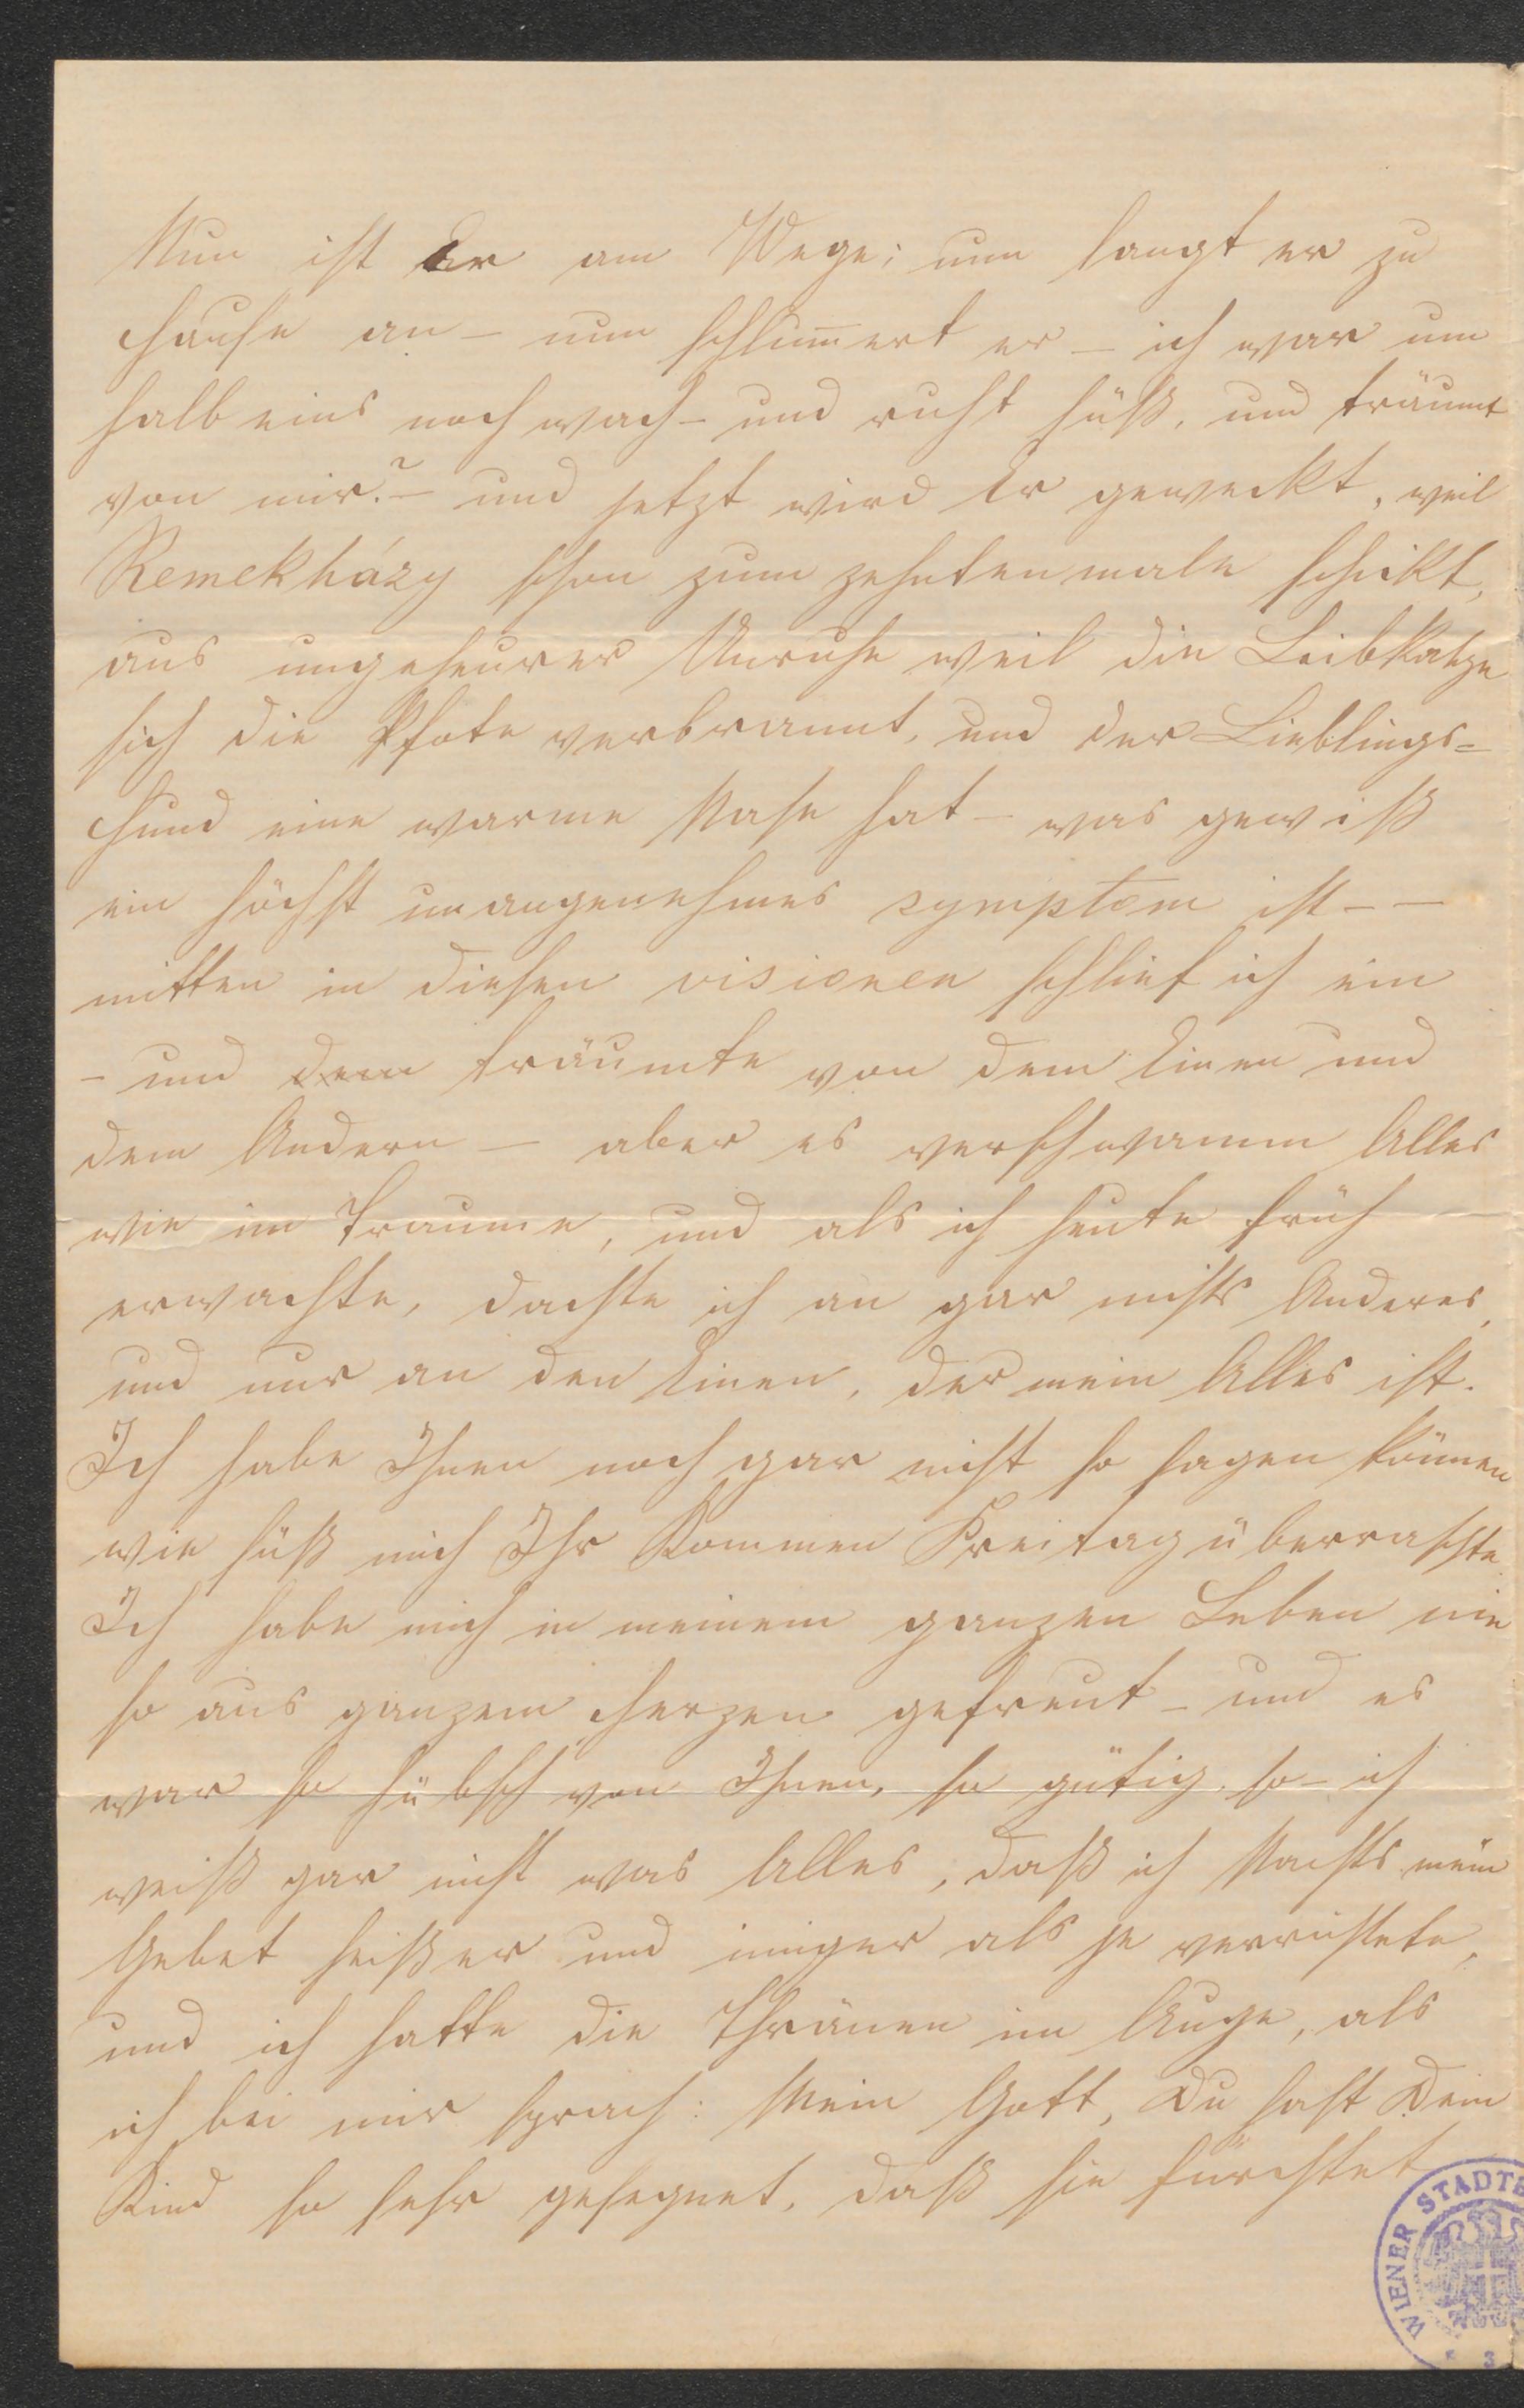 Nun ist Er am Wege; nun langt er zu
Hause an – nun schlum̅ert er – ich war um
halb eins noch wach – und ruht süß, und träumt
von mir? – und jetzt wird Er geweckt, weil
Remekházy schon zum zehntenmale schickt,
aus ungeheurer Unruhe weil die Leibkatze
sich die Pfote verbrannt, und der Lieblings=
hund eine warme Nase hat – was gewiß
ein höchst unangenehmes symptom ist – –
mitten in diesen visionen schlief ich ein
– und dem träumte von dem Einen und
dem Andern – aber es verschwamm Alles
wie im Traume, und als ich heute früh –
erwachte, dachte ich an gar nichts Anderes,
und nur an den Einen, der mein Alles ist.
Ich habe Ihnen noch gar nicht so sagen können
wie süß mich Ihr Kommen Freitag überraschte.
Ich habe mich in meinem ganzen Leben nie
so aus ganzem Herzen gefreut – und es
war so hübsch von Ihnen, so gütig, so – ich
weiß gar nicht was Alles, daß ich Nachts mein
Gebet heißer und inniger als je verrichtete,
und ich hatte die Thränen im Auge, als
ich bei mir sprach: Mein Gott, Du hast Dein
Kind so sehr gesegnet, daß sie fürchtet
WIENER STADTB
3